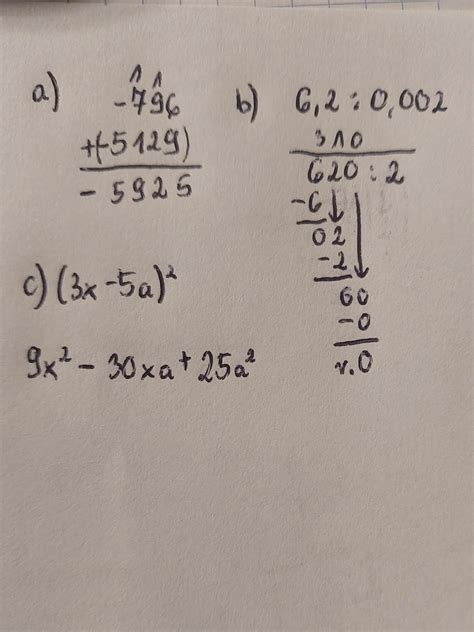 a)
1 1
-796
+(-5129)
-5925
b) 6,2 : 0,002
310
620 : 2
-6
02
-2
60
-0
r.0
c) (3x-5a)²
9x² - 30xa + 25a²